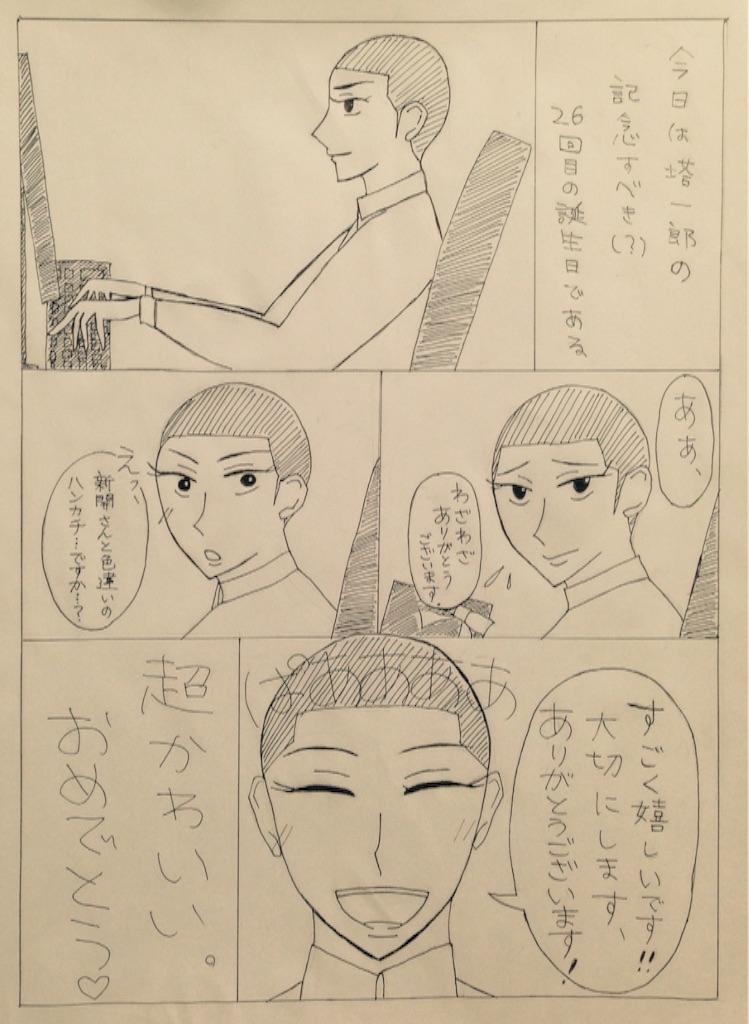 今日は塔一郎の
記念すべき(?)
26回目の誕生日である
ああ、
わざわざ
ありがとう
ございます。
えっ、
新開さんと色違いの
ハンカチ…ですか…?
ぱわわわぁ
すごく嬉しいです!!
大切にします、
ありがとうございます!
超かわいい。
おめでとう♡